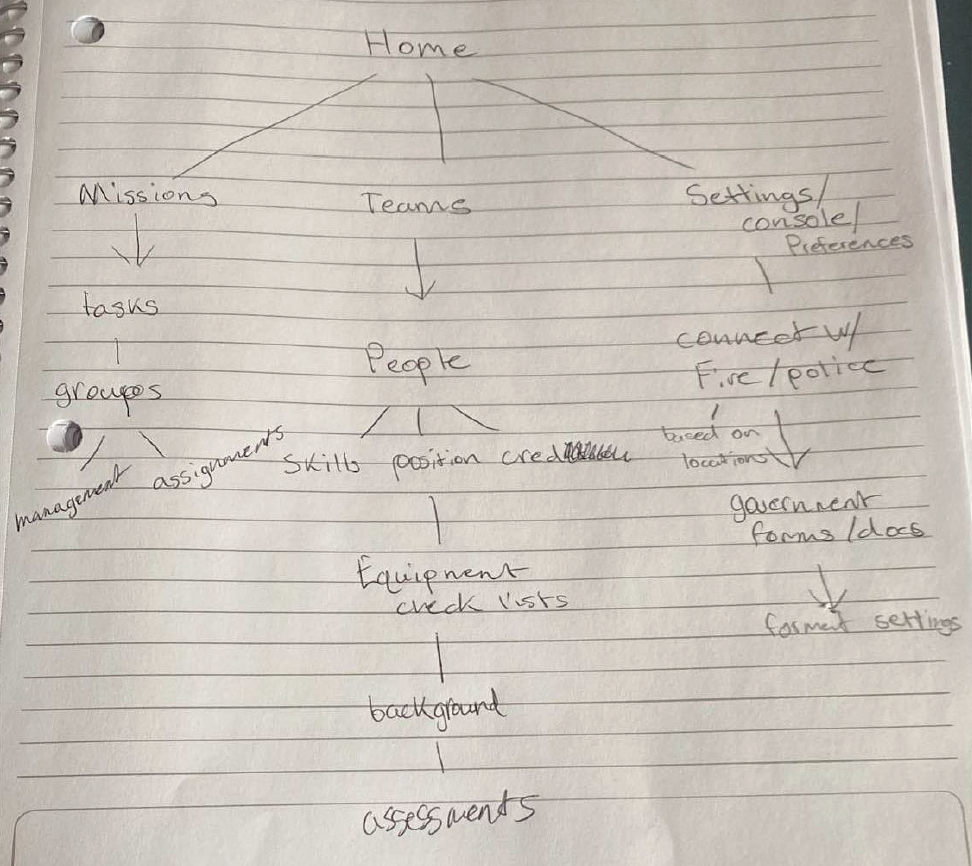 Home
Missions
Teams
Settings/
console/
Preferences
tasks
People
connect w/
Fire/police
groups
management
assignments
skills position
based on
locations
government
forms/docs
Equipment
check lists
format settings
background
assessments